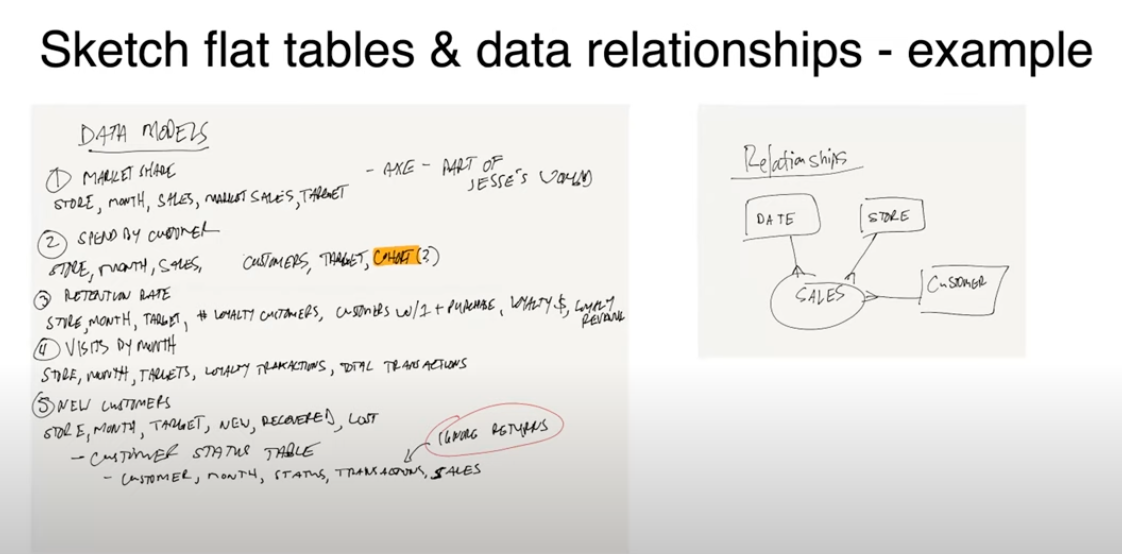 Sketch flat tables & data relationships - example
DATA MODELS
① MARKET SHARE
- AXE - PART OF
JESSE'S WORLD
STORE, MONTH, SALES, MARKET SALES, TARGET
② SPEND BY CUSTOMER
STORE, MONTH, SALES, CUSTOMERS, TARGET, COHORT (?)
③ RETENTION RATE
STORE, MONTH, TARGET, # LOYALTY CUSTOMERS, CUSTOMERS W/1+ PURCHASE, LOYALTY $, LOYALTY
REVENUE
④ VISITS BY MONTH
STORE, MONTH, TARGETS, LOYALTY TRANSACTIONS, TOTAL TRANSACTIONS
⑤ NEW CUSTOMERS
STORE, MONTH, TARGET, NEW, RECOVERED, LOST
IGNORE RETURNS
- CUSTOMER STATUS TABLE
- CUSTOMER, MONTH, STATUS, TRANSACTIONS, SALES
Relationships
DATE
STORE
SALES
CUSTOMER